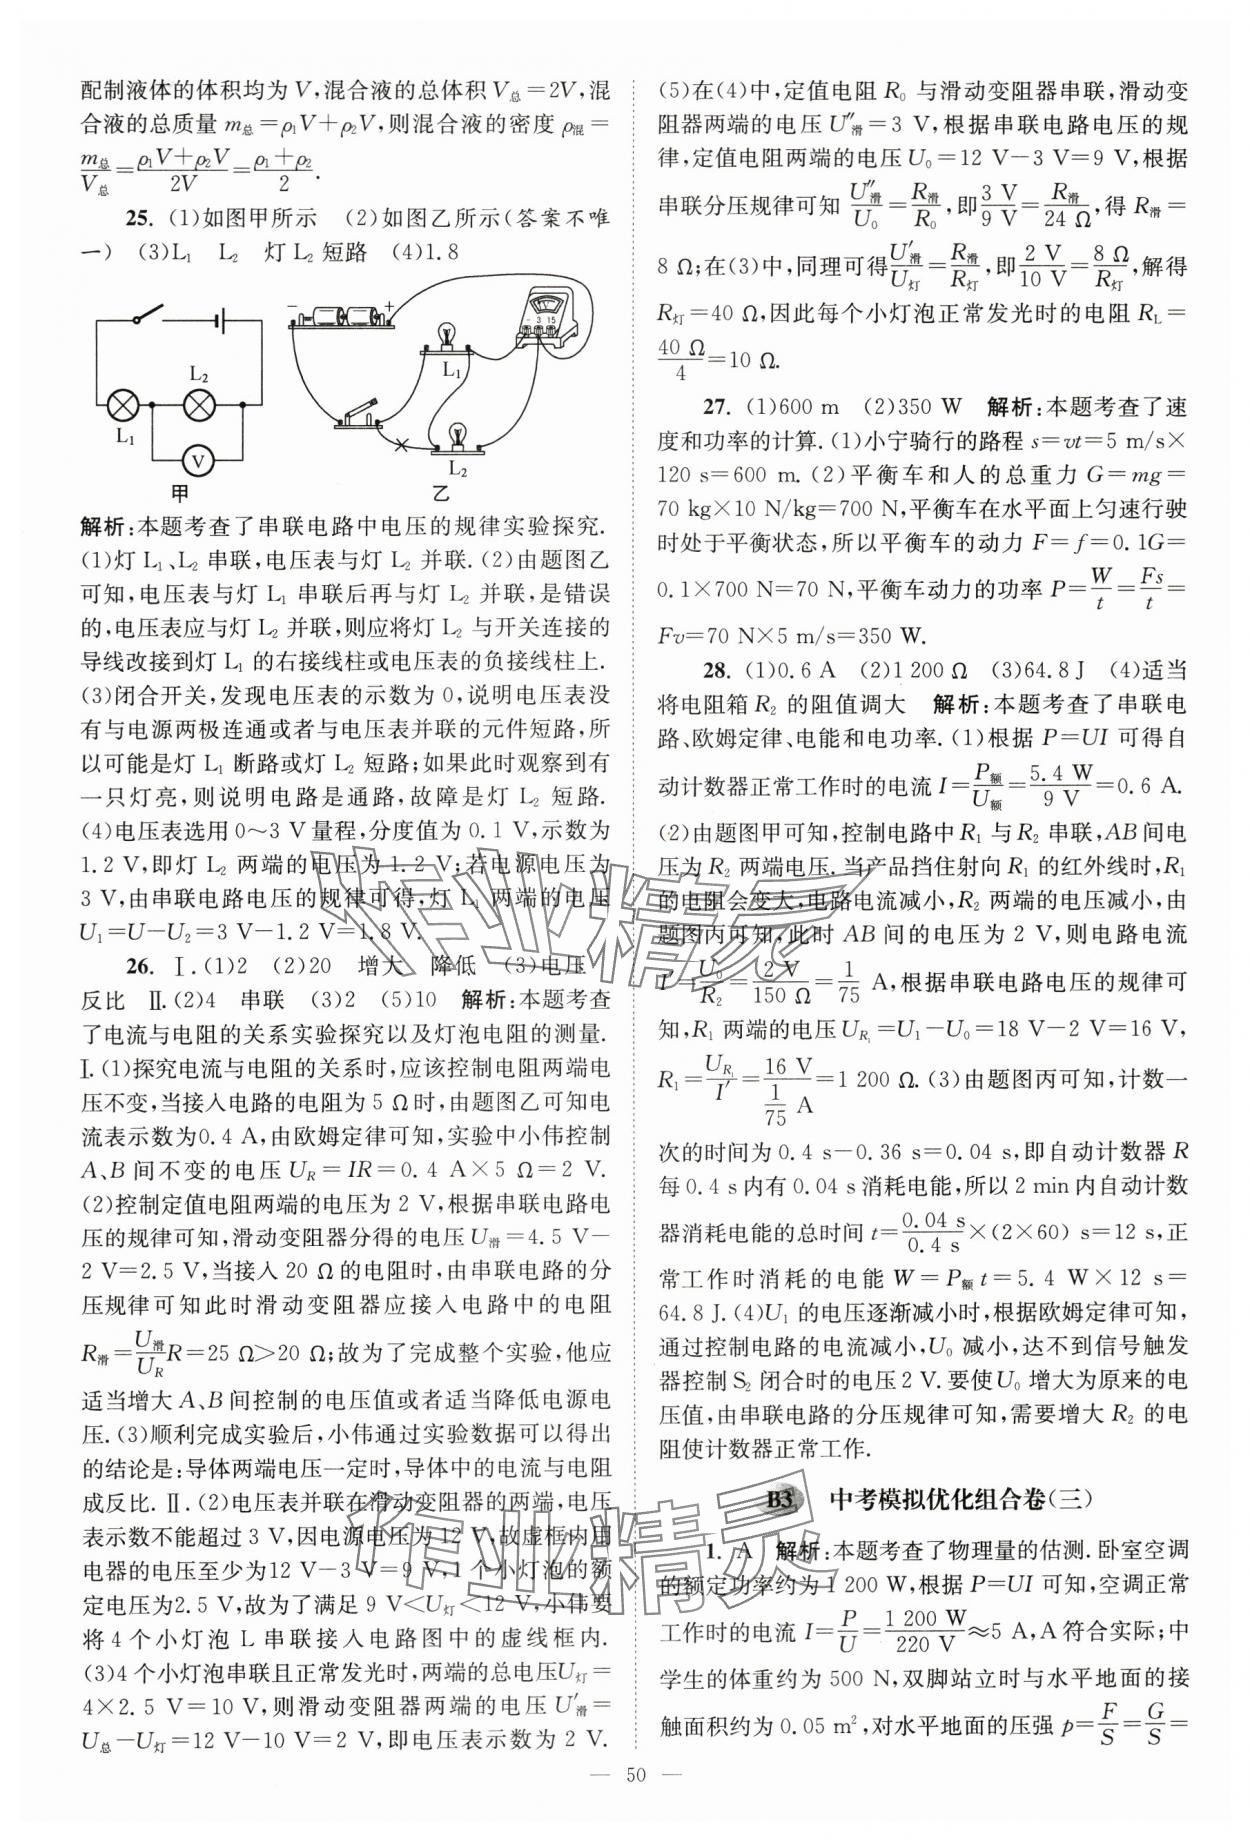 配制液体的体积均为 V,混合液的总体积 V总=2V,混
合液的总质量 m总=ρ₁V+ρ₂V,则混合液的密度 ρ混=
m总/V总=(ρ₁V+ρ₂V)/2V=(ρ₁+ρ₂)/2.
25. (1)如图甲所示 (2)如图乙所示(答案不唯
一) (3)L₁ L₂ 灯 L₂ 短路 (4)1.8
L₂
L₁
V
甲
− +
− 3 15
L₁
L₂
乙
解析:本题考查了串联电路中电压的规律实验探究.
(1)灯 L₁、L₂ 串联,电压表与灯 L₂ 并联.(2)由题图乙
可知,电压表与灯 L₁ 串联后再与灯 L₂ 并联,是错误
的,电压表应与灯 L₂ 并联,则应将灯 L₂ 与开关连接的
导线改接到灯 L₁ 的右接线柱或电压表的负接线柱上.
(3)闭合开关,发现电压表的示数为 0,说明电压表没
有与电源两极连通或者与电压表并联的元件短路,所
以可能是灯 L₁ 断路或灯 L₂ 短路;如果此时观察到有
一只灯亮,则说明电路是通路,故障是灯 L₂ 短路.
(4)电压表选用 0~3 V 量程,分度值为 0.1 V,示数为
1.2 V,即灯 L₂ 两端的电压为 1.2 V;若电源电压为
3 V,由串联电路电压的规律可得,灯 L₁ 两端的电压
U₁=U−U₂=3 V−1.2 V=1.8 V.
26. Ⅰ.(1)2 (2)20 增大 降低 (3)电压
反比 Ⅱ.(2)4 串联 (3)2 (5)10 解析:本题考查
了电流与电阻的关系实验探究以及灯泡电阻的测量.
Ⅰ.(1)探究电流与电阻的关系时,应该控制电阻两端电
压不变,当接入电路的电阻为 5 Ω 时,由题图乙可知电
流表示数为0.4 A,由欧姆定律可知,实验中小伟控制
A、B 间不变的电压 U_R=IR=0.4 A×5 Ω=2 V.
(2)控制定值电阻两端的电压为 2 V,根据串联电路电
压的规律可知,滑动变阻器分得的电压 U滑=4.5 V−
2 V=2.5 V,当接入 20 Ω 的电阻时,由串联电路的分
压规律可知此时滑动变阻器应接入电路中的电阻
R滑=U滑/U_R R=25 Ω>20 Ω;故为了完成整个实验,他应
适当增大 A、B 间控制的电压值或者适当降低电源电
压.(3)顺利完成实验后,小伟通过实验数据可以得出
的结论是:导体两端电压一定时,导体中的电流与电阻
成反比.Ⅱ.(2)电压表并联在滑动变阻器的两端,电压
表示数不能超过 3 V,因电源电压为 12 V,故虚框内用
电器的电压至少为12 V−3 V=9 V,1 个小灯泡的额
定电压为2.5 V,故为了满足 9 V<U灯<12 V,小伟要
将 4 个小灯泡 L 串联接入电路图中的虚线框内.
(3)4 个小灯泡串联且正常发光时,两端的总电压U灯=
4×2.5 V=10 V,则滑动变阻器两端的电压 U′滑=
U总−U灯=12 V−10 V=2 V,即电压表示数为 2 V.
(5)在(4)中,定值电阻 R₀ 与滑动变阻器串联,滑动变
阻器两端的电压 U″滑=3 V,根据串联电路电压的规
律,定值电阻两端的电压 U₀=12 V−3 V=9 V,根据
串联分压规律可知 U″滑/U₀=R滑/R₀,即 3 V/9 V=R滑/24 Ω,得 R滑=
8 Ω;在(3)中,同理可得 U′滑/U灯=R滑/R灯,即 2 V/10 V=8 Ω/R灯,解得
R灯=40 Ω,因此每个小灯泡正常发光时的电阻 R_L=
40 Ω/4=10 Ω.
27. (1)600 m (2)350 W 解析:本题考查了速
度和功率的计算.(1)小宁骑行的路程 s=vt=5 m/s×
120 s=600 m.(2)平衡车和人的总重力 G=mg=
70 kg×10 N/kg=700 N,平衡车在水平面上匀速行驶
时处于平衡状态,所以平衡车的动力 F=f=0.1G=
0.1×700 N=70 N,平衡车动力的功率 P=W/t=Fs/t=
Fv=70 N×5 m/s=350 W.
28. (1)0.6 A (2)1 200 Ω (3)64.8 J (4)适当
将电阻箱 R₂ 的阻值调大 解析:本题考查了串联电
路、欧姆定律、电能和电功率.(1)根据 P=UI 可得自
动计数器正常工作时的电流 I=P额/U额=5.4 W/9 V=0.6 A.
(2)由题图甲可知,控制电路中 R₁ 与 R₂ 串联,AB 间电
压为 R₂ 两端电压.当产品挡住射向 R₁ 的红外线时,R₁
的电阻会变大,电路电流减小,R₂ 两端的电压减小,由
题图丙可知,此时 AB 间的电压为 2 V,则电路电流
I′=U₀/R₂=2 V/150 Ω=1/75 A,根据串联电路电压的规律可
知,R₁ 两端的电压 U_R₁=U₁−U₀=18 V−2 V=16 V,
R₁=U_R₁/I′=16 V/(1/75 A)=1 200 Ω.(3)由题图丙可知,计数一
次的时间为 0.4 s−0.36 s=0.04 s,即自动计数器 R
每 0.4 s 内有 0.04 s 消耗电能,所以 2 min 内自动计数
器消耗电能的总时间 t=0.04 s/0.4 s×(2×60) s=12 s,正
常工作时消耗的电能 W=P额t=5.4 W×12 s=
64.8 J.(4)U₁ 的电压逐渐减小时,根据欧姆定律可知,
通过控制电路的电流减小,U₀ 减小,达不到信号触发
器控制 S₂ 闭合时的电压 2 V.要使U₀ 增大为原来的电
压值,由串联电路的分压规律可知,需要增大 R₂ 的电
阻使计数器正常工作.
B3 中考模拟优化组合卷(三)
1. A 解析:本题考查了物理量的估测.卧室空调
的额定功率约为 1 200 W,根据 P=UI 可知,空调正常
工作时的电流 I=P/U=1 200 W/220 V≈5 A,A 符合实际;中
学生的体重约为 500 N,双脚站立时与水平地面的接
触面积约为 0.05 m²,对水平地面的压强 p=F/S=G/S=
— 50 —
作业精灵
作业精灵